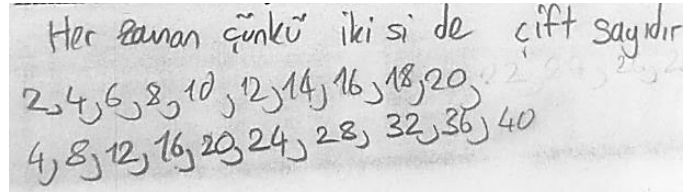 Her zaman çünkü iki si de çift sayıdır
2,4,6,8,10,12,14,16,18,20,
4,8,12,16,20,24,28,32,36,40